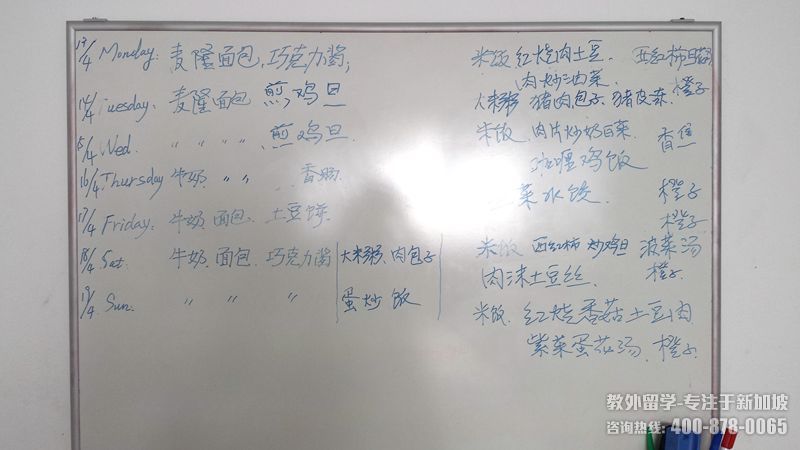 13/4 Monday: 麦隆面包,巧克力酱; 米饭 红烧肉土豆. 西红柿
肉炒油菜. 橙子
14/4 Tuesday: 麦隆面包 煎鸡旦 大米粥 猪肉包子 猪皮冻.
15/4 Wed. 〃 〃 〃 〃 煎鸡旦 米饭 肉片炒奶白菜 香蕉
咖喱鸡饭
16/4 Thursday 牛奶 〃 〃 香肠 菜水饺 橙子
17/4 Friday: 牛奶 面包 土豆饼 橙子
18/4 Sat: 牛奶、面包、巧克力酱 大米粥、肉包子 米饭 西红柿炒鸡旦 菠菜汤
肉沫土豆丝 橙子
19/4 Sun: 〃 〃 〃 蛋炒饭 米饭. 红烧香菇土豆肉
紫菜蛋花汤. 橙子.
教外留学-专注于新加坡
咨询热线: 400-878-0065